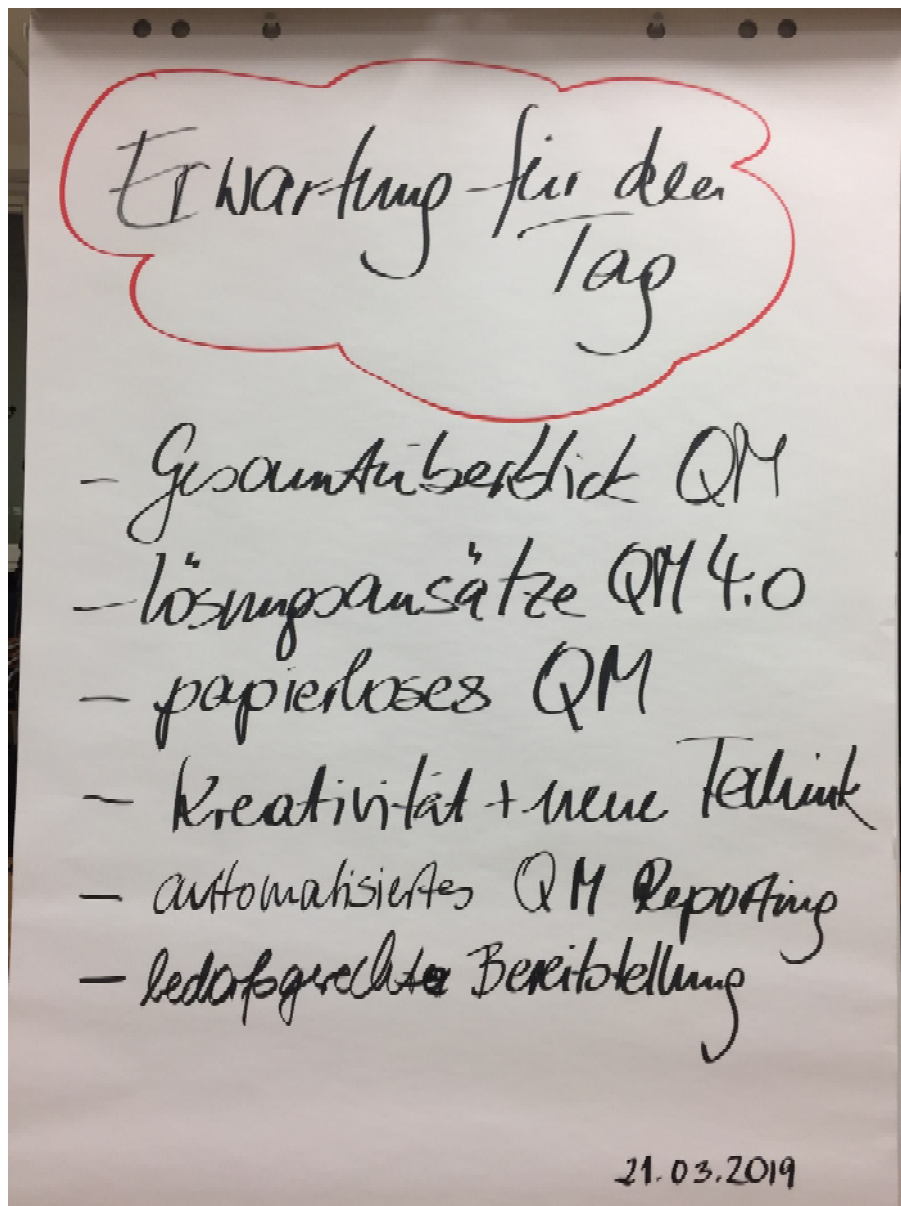 Erwartung für den
Tag
- Gesamtüberblick QM
- Lösungsansätze QM 4.0
- papierloses QM
- Kreativität + neue Technik
- automatisiertes QM Reporting
- bedarfsgerechte Bereitstellung
21.03.2019